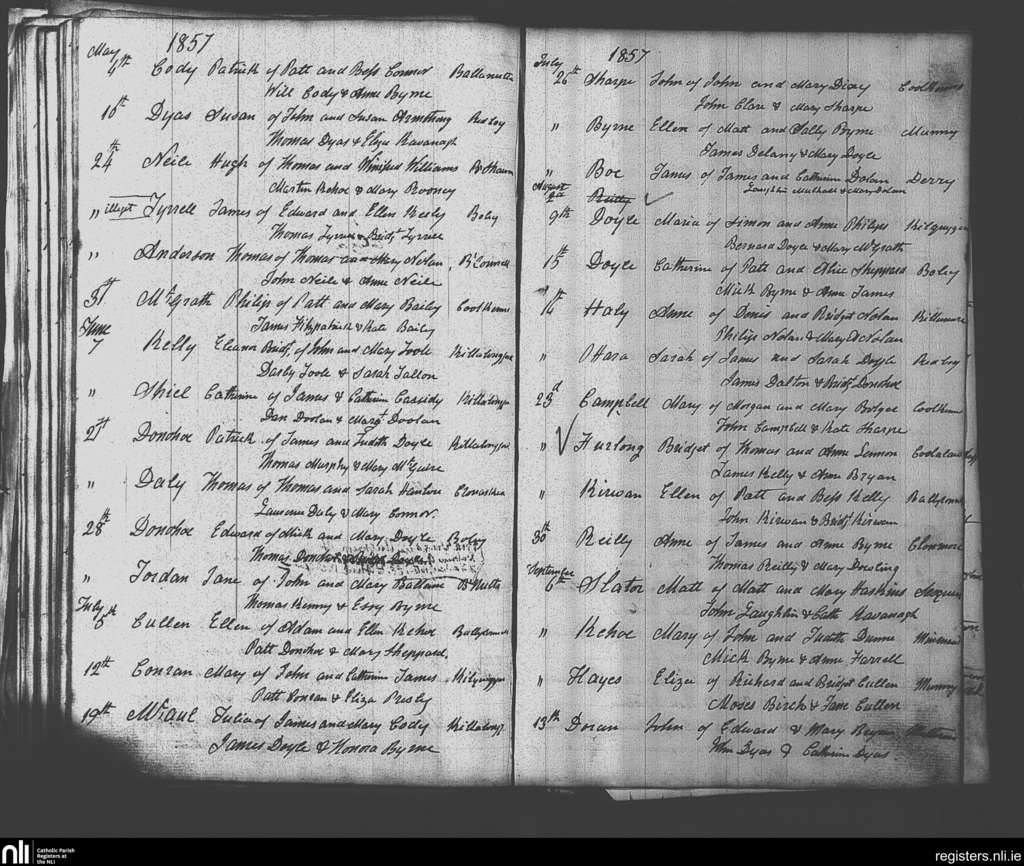 1857
May
4th Cody Patrick of Patt and Bess Connor
Will Cody & Anne Byrne
10th Dyas Susan of John and Susan Armstrong Redboy
Thomas Dyas & Eliza Kavanagh
24th Neile Hugh of Thomas and Winifred Williams
Martin Kehoe & Mary Rooney
" illegt Tyrrell James of Edward and Ellen Boley
Thomas Tyrrell & Bridt Tyrrell
" Anderson Thomas of Thomas and Mary Nolan
John Neile & Anne Neile
31st McGrath Philip of Patt and Mary Bailey
James Fitzpatrick & Kate Bailey
June
7 Kelly Eleanor Bridt of John and Mary Toole
Darby Toole & Sarah Tallon
" Shiel Catherine of James & Cathrin Cassidy
Dan Doolan & Margt Doolan
21st Donohoe Patrick of James and Judith Doyle
Thomas Murphy & Mary McGuire
" Daly Thomas of Thomas and Sarah
Laurence Daly & Mary Connor.
28th Donohoe Edward of Mick and Mary Doyle Boley
Thomas Donohoe &
" Jordan Jane of John and Mary
Thomas Kenny & Essy Byrne
July
5th Cullen Ellen of Adam and Ellen Kehoe
Patt Donohoe & Mary Sheppard.
12th Conran Mary of John and Catherine James
Patt Conran & Eliza
19th Julia of James and Mary Cody
James Doyle & Honora Byrne
1857
July
26th Sharpe John of John and Mary
John Clare & Mary Sharpe
" Byrne Ellen of Matt and Sally Byrne Munny
James Delany & Mary Doyle
" Boe James of James and Cathrin Dolan Derry
Laughlin Mulhall & Mary Dolan
August
2d Reilly
9th Doyle Maria of Simon and Anne
Bernard Doyle & Mary McGrath
15th Doyle Catherine of Patt and Alice Sheppard Boley
Mick Byrne & Anne James
16th Haly Anne of Denis and Bridget Nolan
Philip Nolan & Mary Nolan
" OHara Sarah of James and Sarah Doyle Redboy
James Dalton & Bridt Donohoe
23d Campbell Mary of Morgan and Mary Bolger
John Campbell & Kate Sharpe
" Furlong Bridget of Thomas and Anne Lennon
James Kelly & Anne Bryan
" Kirwan Ellen of Patt and Bess Kelly
John Kirwan & Bridt Kirwan
30th Reilly Anne of James and Anne Byrne Clonmore
Thomas Reilly & Mary Dowling
September
6th Slator Matt of Matt and Mary Haskins
John Laughlin & Cath Kavanagh
" Kehoe Mary of John and Judith Dunne
Mick Byrne & Anne Farrell
" Hayes Eliza of Richard and Bridget Cullen Munny
Moses Birch & Jane Cullen
13th Doran John of Edward & Mary Byrne
Wm Dyas & Catherine Dyas.
nli Catholic Parish
Registers at
the NLI
registers.nli.ie